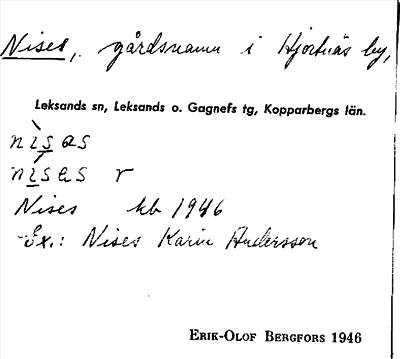 Nises, gårdsnamn i Hjortnäs by,
Leksands sn, Leksands o. Gagnefs tg, Kopparbergs län.
nìsas
nísεs r
Nises kb 1946
Ex.: Nises Karin Andersson
ERIK-OLOF BERGFORS 1946